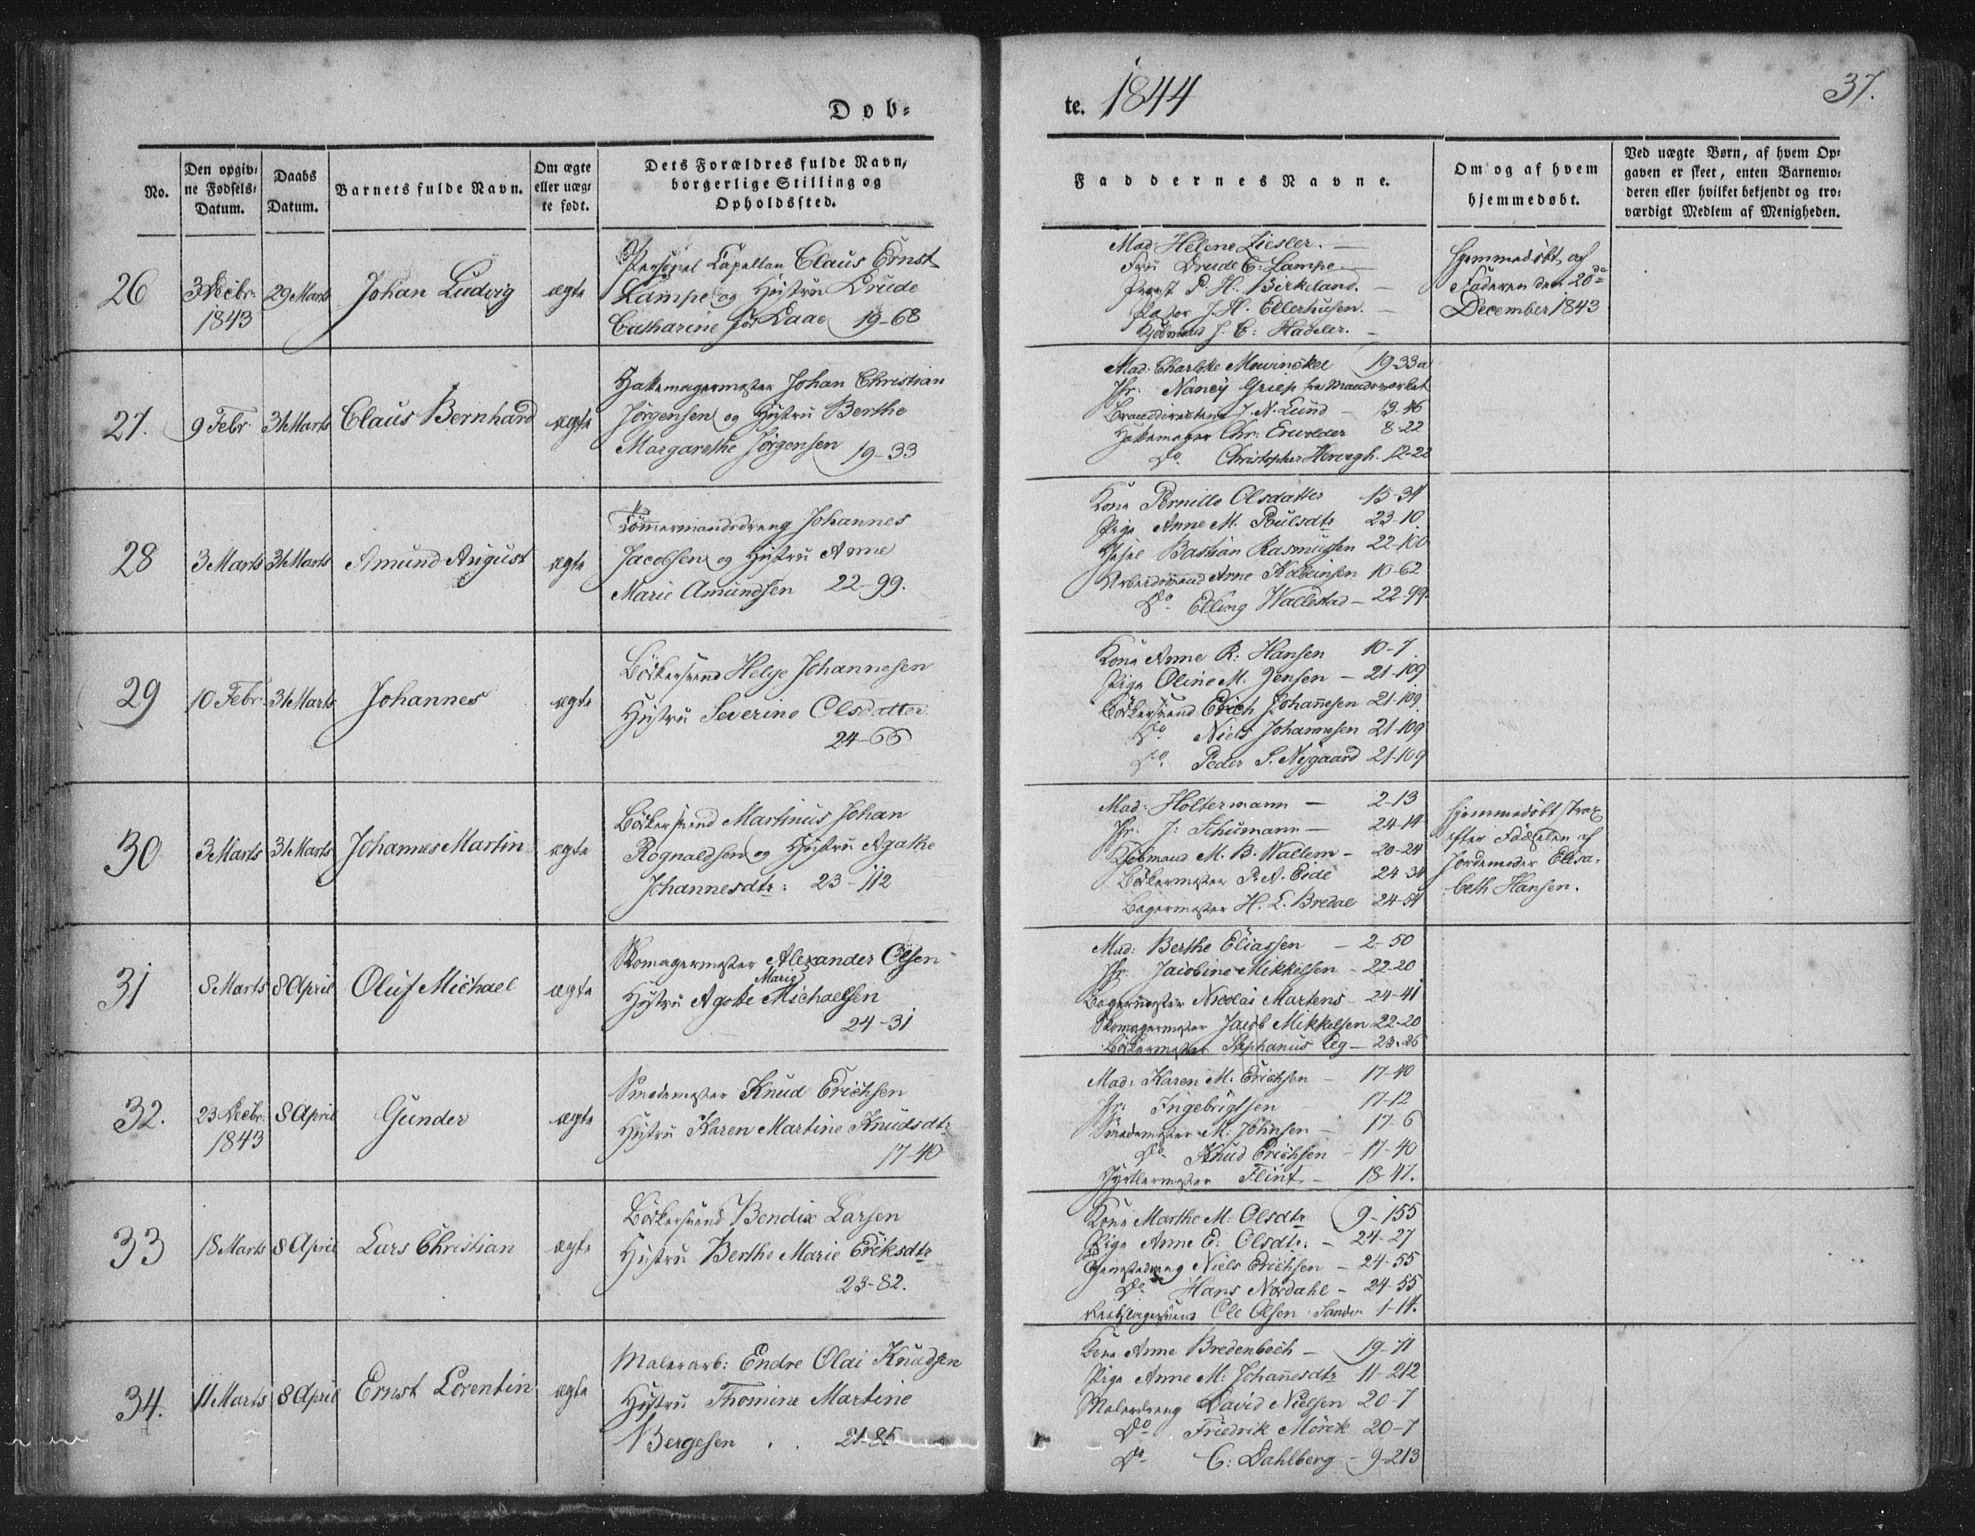 Døb=
te. 1844
37.
No.
Den opgiv=
ne Fødsels=
Datum.
Daabs
Datum.
Barnets fulde Navn.
Om ægte
eller uæg=
te født.
Dets Forældres fulde Navn,
borgerlige Stilling og
Opholdssted.
Faddernes Navne.
Om og af hvem
hjemmedøbt.
Ved uægte Børn, af hvem Op=
gaven er skeet, enten Barnemo=
deren eller hvilket bekjendt og tro=
værdigt Medlem af Menigheden.
26
3 Decbr.
1843
29 Marts
Johan Ludvig
ægte
Personel Capellan Claus Ernst
Lampe og Hustru Drude
Catharine f. Daae 19-68
Mad: Helene Ziesler. —
Fru Drude C: Lampe —
Provst P. H. Birkeland. —
Pastor J. H. Ellerhusen. —
Kjøbmand J. C: Hadeler. —
Hjemmedøbt af
Faderen den 20de
December 1843
27.
9 Febr.
31 Marts
Claus Bernhard
ægte
Hattemagermester Johan Christian
Jörgensen og Hustru Berthe
Margarethe Jörgensen 19-33
Mad. Charlotte Mowinckel 19-33a
Jfr. Nancy Griep
Branddirecteur J. N. Lund — 13-46
Hattemager Chr. 8-22
Do. Christopher 12-22
28
3 Marts
31 Marts
Amund August
ægte
Tömmermandsdreng Johannes
Jacobsen og Hustru Anne
Marie Amundsen 22-99.
Kone Pernille Olsdatter 15-34
Pige Anne M. Poulsdtr 23-10.
Bastian Rasmussen 22-100
Arbeidsmand Arne Kolbeinsen 10-62
Do. Elling Wallestad — 22-99.
29
10 Febr.
31 Marts
Johannes
ægte
Bödkersvend Helje Johannesen
Hustru Severine Olsdatter
24-66
Kone Anne R: Hansen 10-7.
Pige Oline M. Jensen — 21-109
Bödkersvend Erich Johannesen 21-109.
Do Niels Johannesen 21-109
Do. Peder S. Nygaard 21-109
30
3 Marts
31 Marts
Johannes Martin
ægte
Bödkersvend Martinus Johan
Rognaldsen og Hustru Agathe
Johannesdtr: 23-112
Mad: Holtermann — 2-13
Jfr. J: Schumann — 24-14
Kjöbmand M. B. Wallem — 20-24
Bödkermester P. A. Eide 24-34
Bagermester H. L. Bredal 24-54
Hjemmedøbt strax
efter Födselen af
Jordemoder Elisa-
beth Hansen.
31
8 Marts
8 April
Oluf Michael
ægte
Skomagermester Alexander Olsen
Marie
Hustru Agate Michaelsen
24-31
Mad: Berthe Eliassen — 2-50
Jfr. Jacobine Mikkelsen — 22-20
Bagermester Nicolai Martens — 24-41
Skomagermester Jacob Mikkelsen 22-20
Bödkermester Stephanus Eeg — 23-86
32.
23 Decbr.
1843
8 April
Gunder
ægte
Smedemester Knud Erichsen
Hustru Karen Martine Knudsdtr
17-40
Mad: Karen M. Erichsen — 17-40
Jfr. Ingebrigtsen 17-12
Smedemester M. Johnsen — 17-6
Do. Knud Erichsen — 17-40
Gjörtlermester Flint. — 18-47.
33
18 Marts
8 April
Lars Christian
ægte
Bödkersvend Bendix Larsen
Hustru Berthe Marie Eriksdtr
23-82.
Kone Marthe M: Olsdtr 9-155
Pige Anne E: Olsdtr. — 24-27
Tjenestedreng Niels Erichsen — 24-55
Do Hans Nordahl — 24-55
Ole Olsen Sande 1-14.
34.
11 Marts
8 April
Ernst Lorentin
ægte
Malerarb: Endre Olai Knudsen
Hustru Thomine Martine
Bergesen . . 21-85
Kone Anne Bredenbech — 19-71
Pige Anne M: Johannesdtr 11-212
Malerdreng David Nielsen 20-7
Do Friedrik Mörck 20-7
Do. C: Dahlberg — 9-213